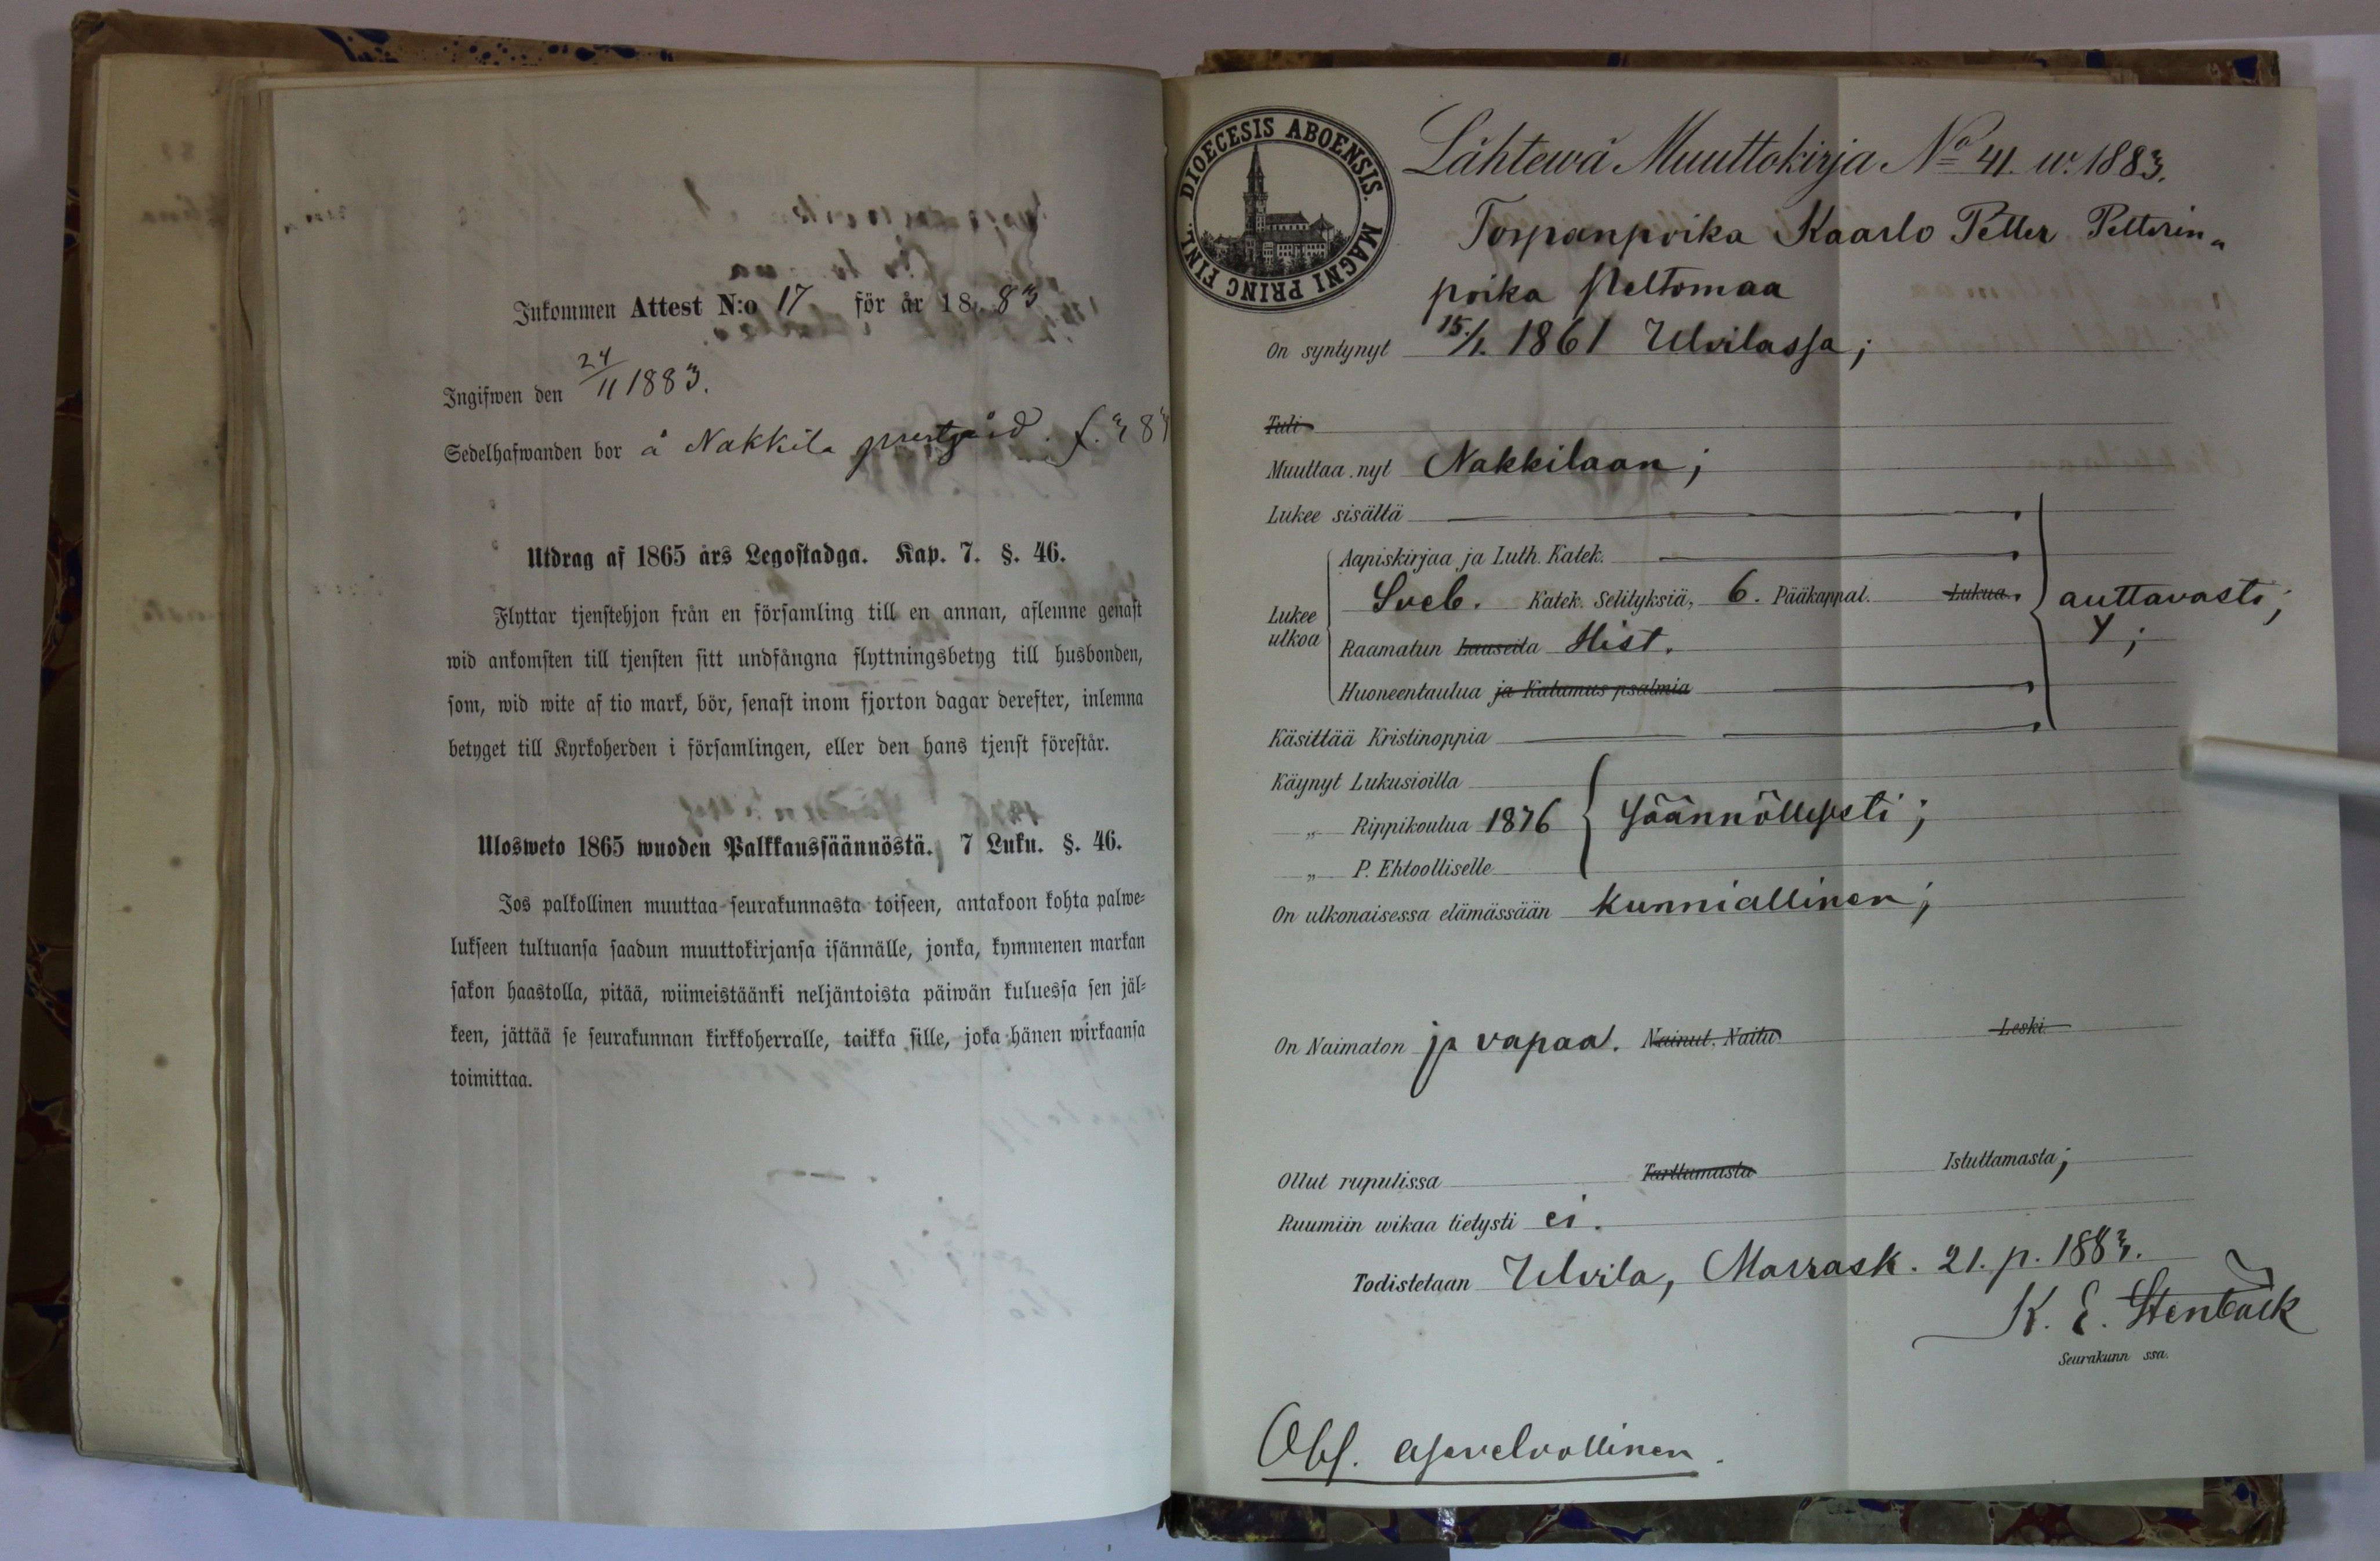 Inkommen Attest N:o 17 för år 1883
Ingifwen den 24/11 1883.
Sedelhafwanden bor å Nakkila prestgård.
Utdrag af 1865 års Legostadga. Kap. 7. §. 46.
Flyttar tjenstehjon från en församling till en annan, aflemne genast
wid ankomsten till tjensten sitt undfångna flyttningsbetyg till husbonden,
som, wid wite af tio mark, bör, senast inom fjorton dagar derefter, inlemna
betyget till Kyrkoherden i församlingen, eller den hans tjenst förestår.
Ulosweto 1865 wuoden Palkkaussäännöstä. 7 Luku. §. 46.
Jos palkollinen muuttaa seurakunnasta toiseen, antakoon kohta palwe-
lukseen tultuansa saadun muuttokirjansa isännälle, jonka, kymmenen markan
sakon haastolla, pitää, wiimeistäänki neljäntoista päiwän kuluessa sen jäl-
keen, jättää se seurakunnan kirkkoherralle, taikka sille, joka hänen wirkaansa
toimittaa.
DIOECESIS ABOENSIS. MAGNI PRINC FINL.
Lähtewä Muuttokirja No 41. w. 1883.
Torpanpoika Kaarlo Petter Petterin
poika Peltomaa
On syntynyt 15/1. 1861 Ulvilassa;
Tuli
Muuttaa nyt Nakkilaan;
Lukee sisältä
Aapiskirjaa ja Luth. Katek.
Lukee ulkoa Sveb. Katek. Selityksiä, 6. Pääkappal. Lukua. auttavasti;
Raamatun Lauseita Hist.
Huoneentaulua ja Katumus psalmia
Käsittää Kristinoppia
Käynyt Lukusioilla
„ Rippikoulua 1876 säännöllisesti;
„ P. Ehtoolliselle
On ulkonaisessa elämässään kunniallinen;
On Naimaton ja vapaa. Nainut. Naitu Leski.
Ollut rupulissa Tarttumasta Istuttamasta;
Ruumiin wikaa tietysti ei.
Todistetaan Ulvila, Marrask. 21. p. 1883.
K. E. Stenbäck
Seurakunn ssa.
Obs. asevelvollinen.